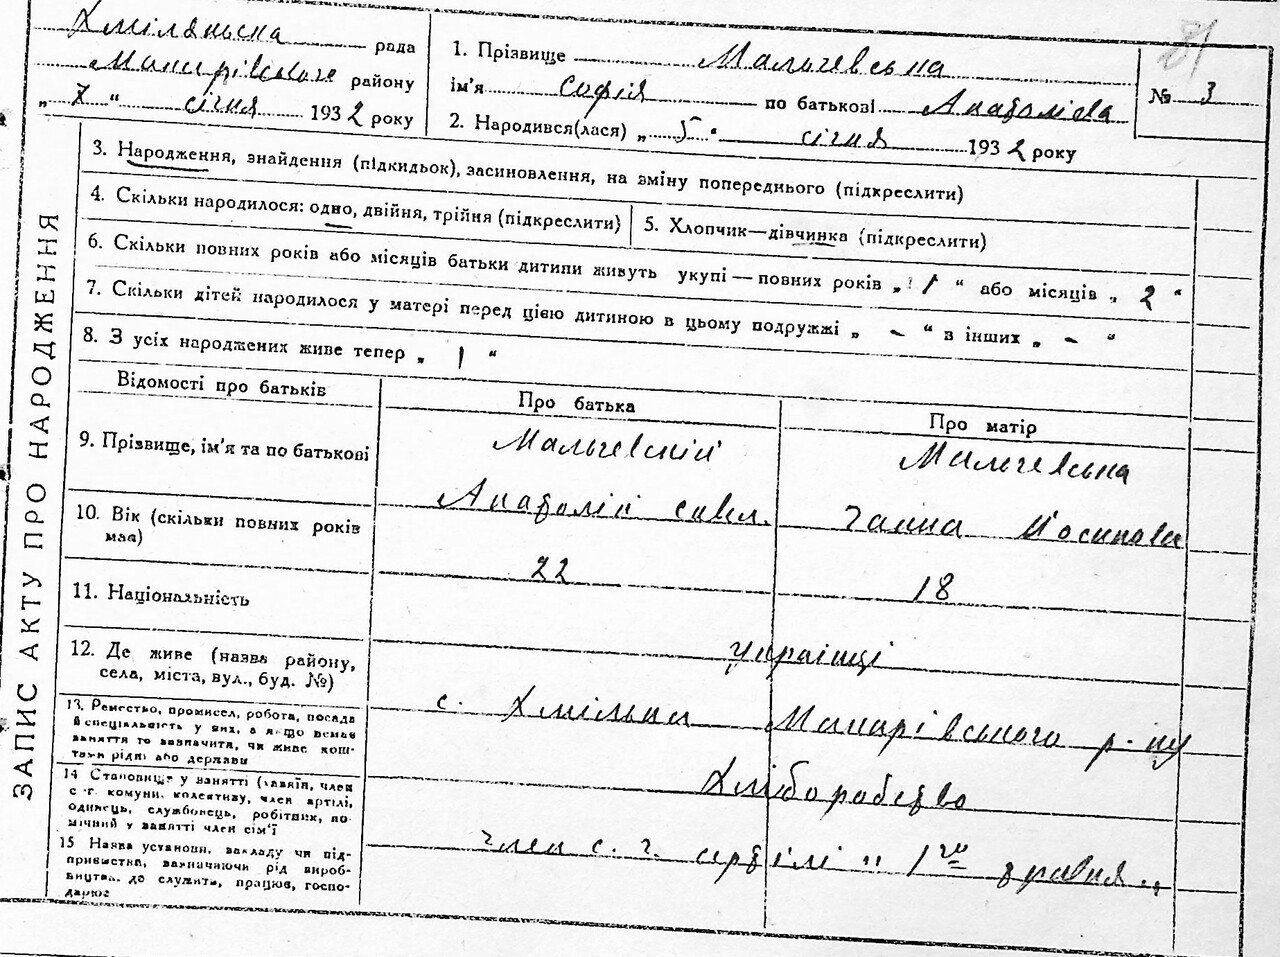 Хмілянська рада
Макарівського району
„ 7 “ січня 1932 року
1. Прізвище Мальчевська
ім'я Софія по батькові Анатолієва
2. Народився(лася) „ 5 “ січня 1932 року
№ 3
81
ЗАПИС АКТУ ПРО НАРОДЖЕННЯ
3. Народження, знайдення (підкидьок), засиновлення, на зміну попереднього (підкреслити)
4. Скільки народилося: одно, двійня, трійня (підкреслити) 5. Хлопчик—дівчинка (підкреслити)
6. Скільки повних років або місяців батьки дитини живуть укупі — повних років „ 1 “ або місяців „ 2 “
7. Скільки дітей народилося у матері перед цією дитиною в цьому подружжі „ – “ з інших „ – “
8. З усіх народжених живе тепер „ 1 “
Відомості про батьків Про батька Про матір
9. Прізвище, ім'я та по батькові
Мальчевський Мальчевська
Анатолій Савл. Ганна Йосипова
10. Вік (скільки повних років має)
22 18
11. Національність
українці
12. Де живе (назва району,
села, міста, вул., буд. №)
с. Хмільна Макарівського р-ну
13. Ремество, промисел, робота, посада
й спеціальність у них, а якщо немає
заняття то зазначити, чи живе кош-
тами рідні або держави
Хліборобство
14 Становище у занятті (хазяїн, член
с.-г. комуни, колективу, член артілі,
одинець, службовець, робітник, по-
мічний у занятті член сім'ї
член с. г. артілі „ 1го травня „
15 Назва установи, закладу чи під-
приємства, зазначаючи рід вироб-
ництва, де служить, працює, госпо-
дарює